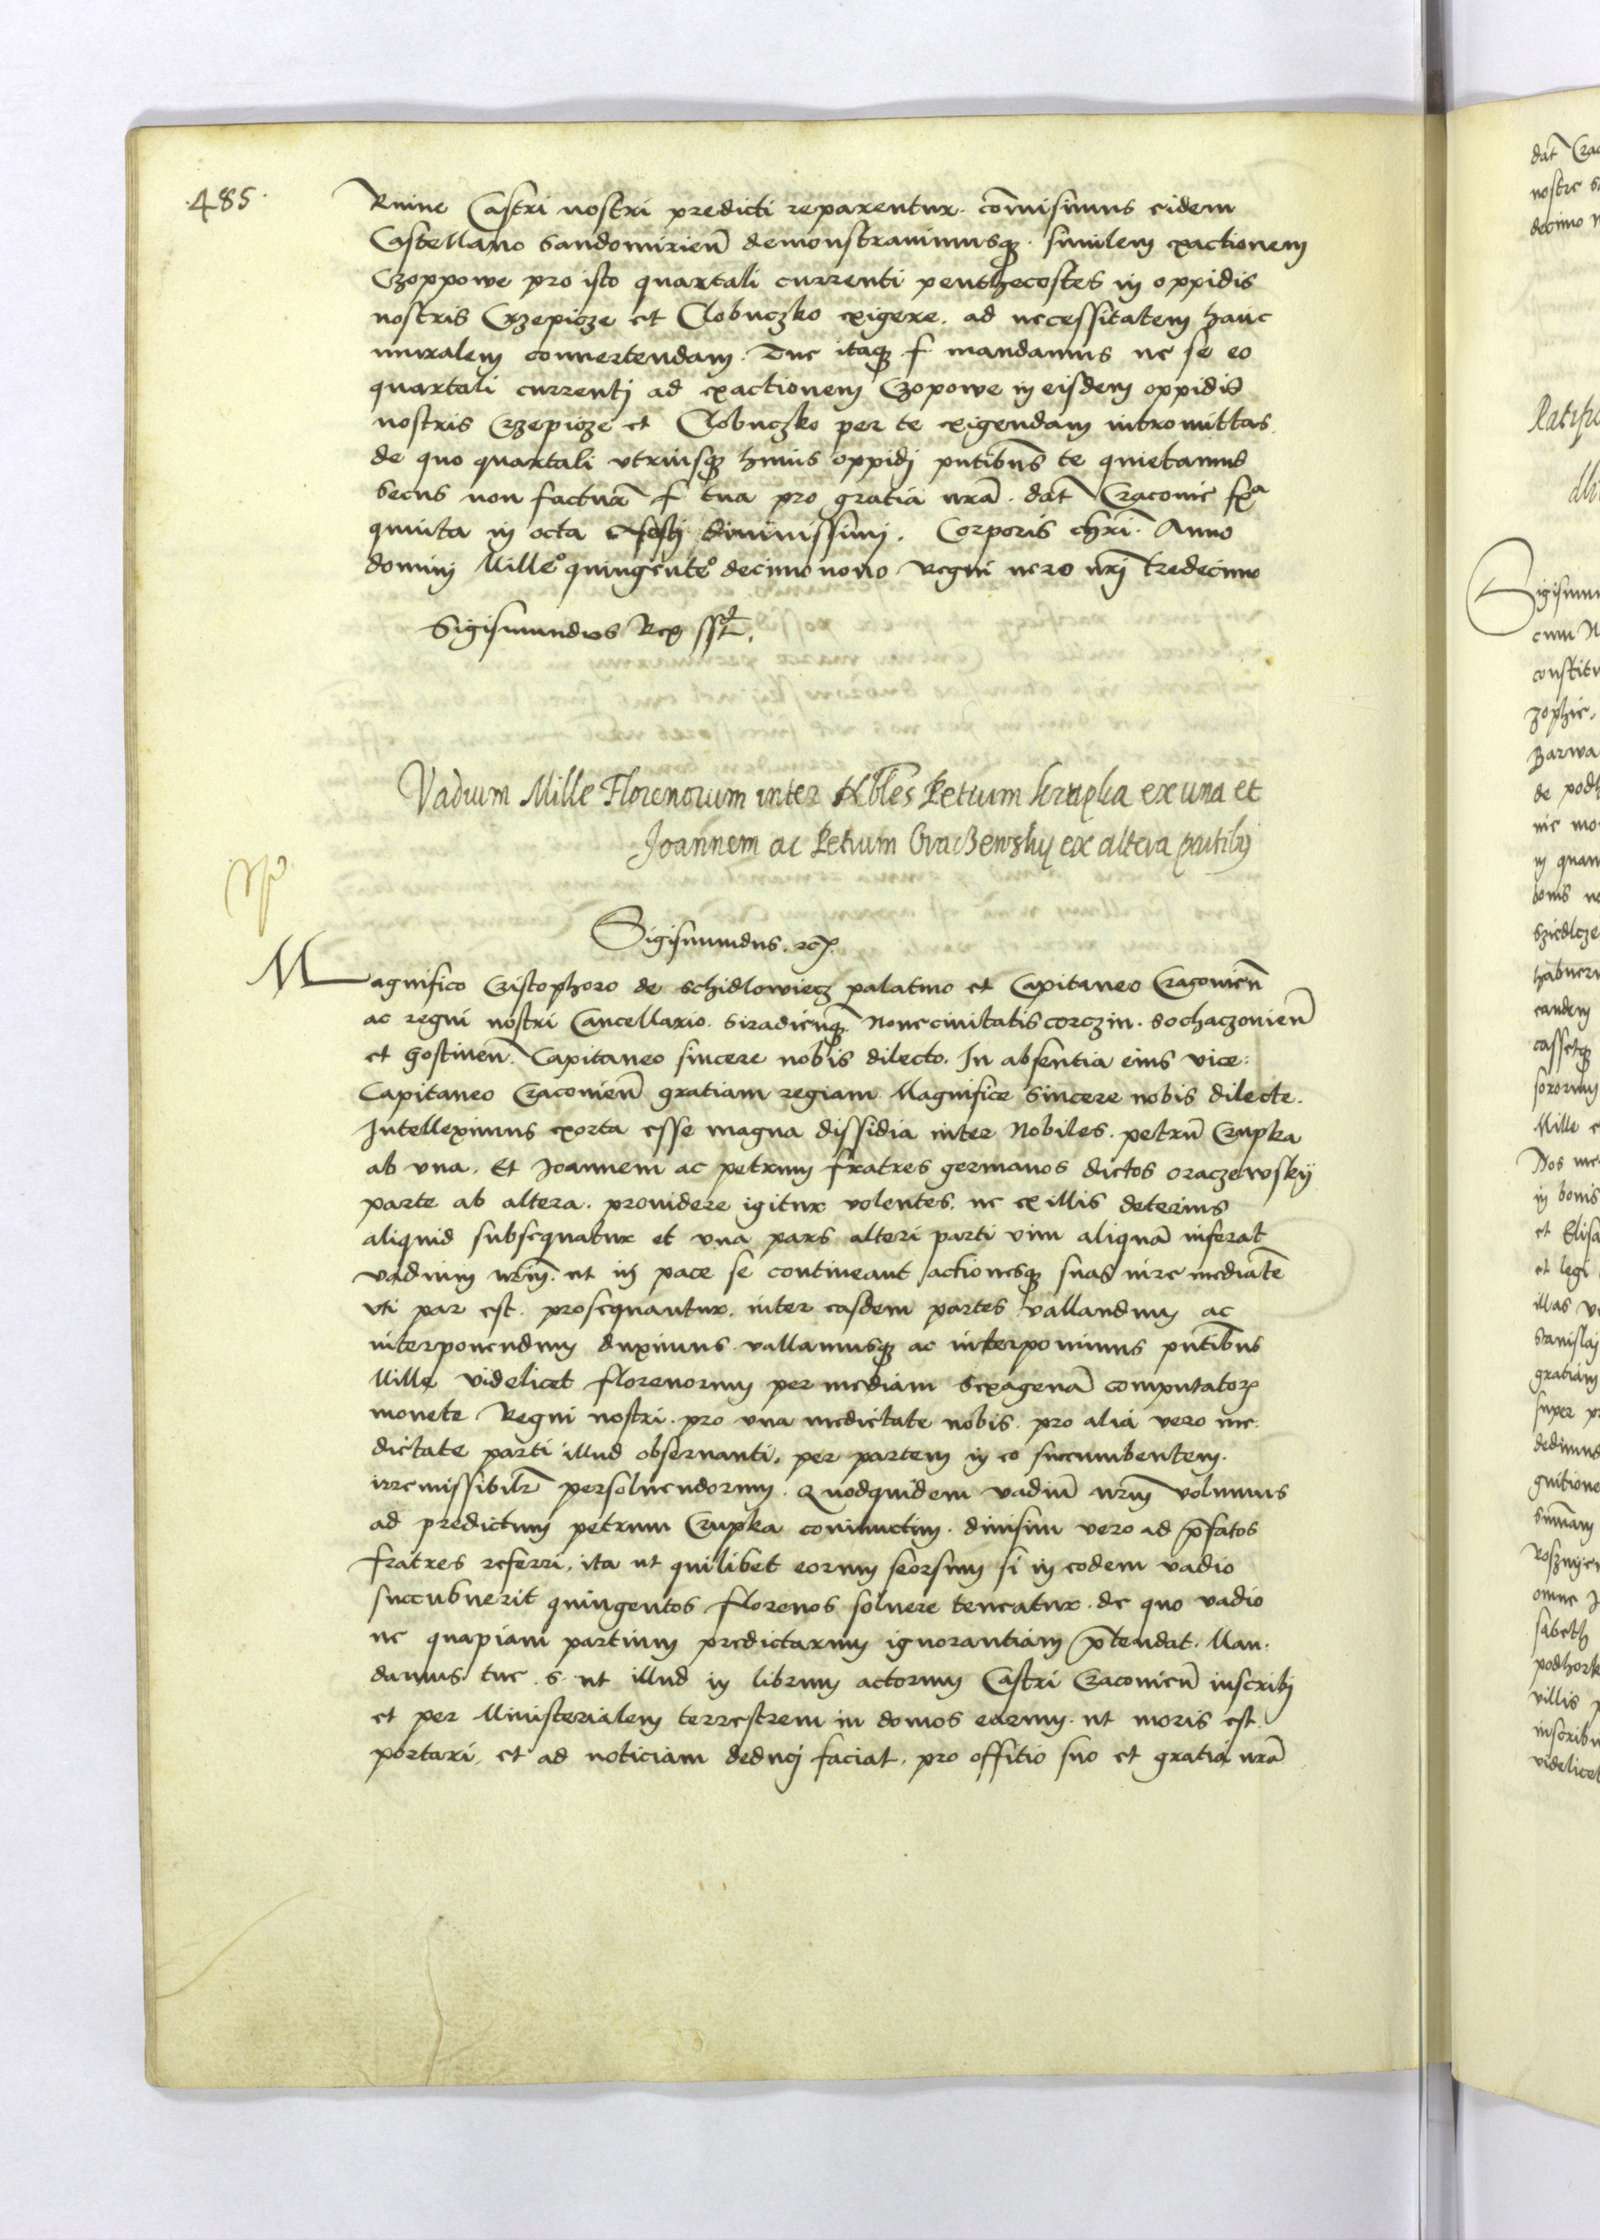 ·485·
Ruine Castri nostri predicti reparentur. co͠misimus eidem
Castellano Sandomirien͠ demonstrauimusq3. similem exactionem
Czoppowe pro isto quartali currenti penthecostes in oppidis
nostris Crzepicze et Clobuczko exigere. ad necessitatem hanc
muralem conuertendam. Tue itaq3 f. mandamus ne se eo
quartali currentj ad exactionem Czopowe in eisdem oppidis
nostris Crzepicze et Clobuczko per te exigendam intromittas.
de quo quartali vtriusq3 huius oppidj pn͠tibus te quietamus
secus non factur͠ f. tua pro gratia nr͠a. dat͠ Cracouie fr͠a
quinta in octa festj diuinissimj. Corporis chr͠i. Anno
dominj Mille͠o quingente͠o decimo nono Regni uero nr͠j tredecimo
Sigismundus Rex sst.
Vadium Mille Florenorum inter Nobles Petrum Krupka ex una et
Joannem ac Petrum Oraczewsky ex altera partibus
Sigismundus. rex.
Magnifico Cristophoro de Schidlowiecz palatino et Capitaneo Cracouien͠
ac regni nostri Cancellario. Siradienq3. Nouecíuitatis corczin. Sochaczouien͠
et Gostinen͠. Capitaneo sincere nobis dilecto. In absentia eius vice:
Capitaneo Cracouien͠ gratiam regiam. Magnifice sincere nobis dilecte.
Intelleximus exorta esse magna dissidia inter Nobiles. petru͠ Crupka
ab vna. Et Joannem ac petrum fratres germanos dictos oraczewskij
parte ab altera. prouidere igitur volentes. ne ex illis deterius
aliquid subsequatur et vna pars alteri parti vim aliqua͠ inferat
vadium nr͠m. ut in pace se contineant actionesq3 suas iure mediante͠
vti par est. prosequantur. inter easdem partes vallandum ac
interponendum duximus. vallamusq3 ac interponimus pn͠tibus
Mille videlicet florenorum per mediam sexagena͠ computator͠
monete Regni nostri. pro vna medietate nobis. pro alia vero me:
dietate parti illud obseruanti. per partem in eo succumbentem.
irremissibilr͠ persoluendorum. Quodquidem vadiu͠ nr͠m volumus
ad predictum petrum Crupka coniunctim. diuisim vero ad p͠fatos
fratres referri. ita ut quilibet eorum seorsum si in eodem vadio
succubuerit quingentos florenos soluere teneatur. de quo vadio
ne quapiam partium predictarum ignorantiam p͠tendat. Man:
damus tue. s. ut illud in librum actorum Castri Cracouien͠ inscribj
et per Ministerialem terrestrem in domos earum. ut moris est.
portari. et ad noticiam deducj faciat. pro offitio suo et gratia nr͠a